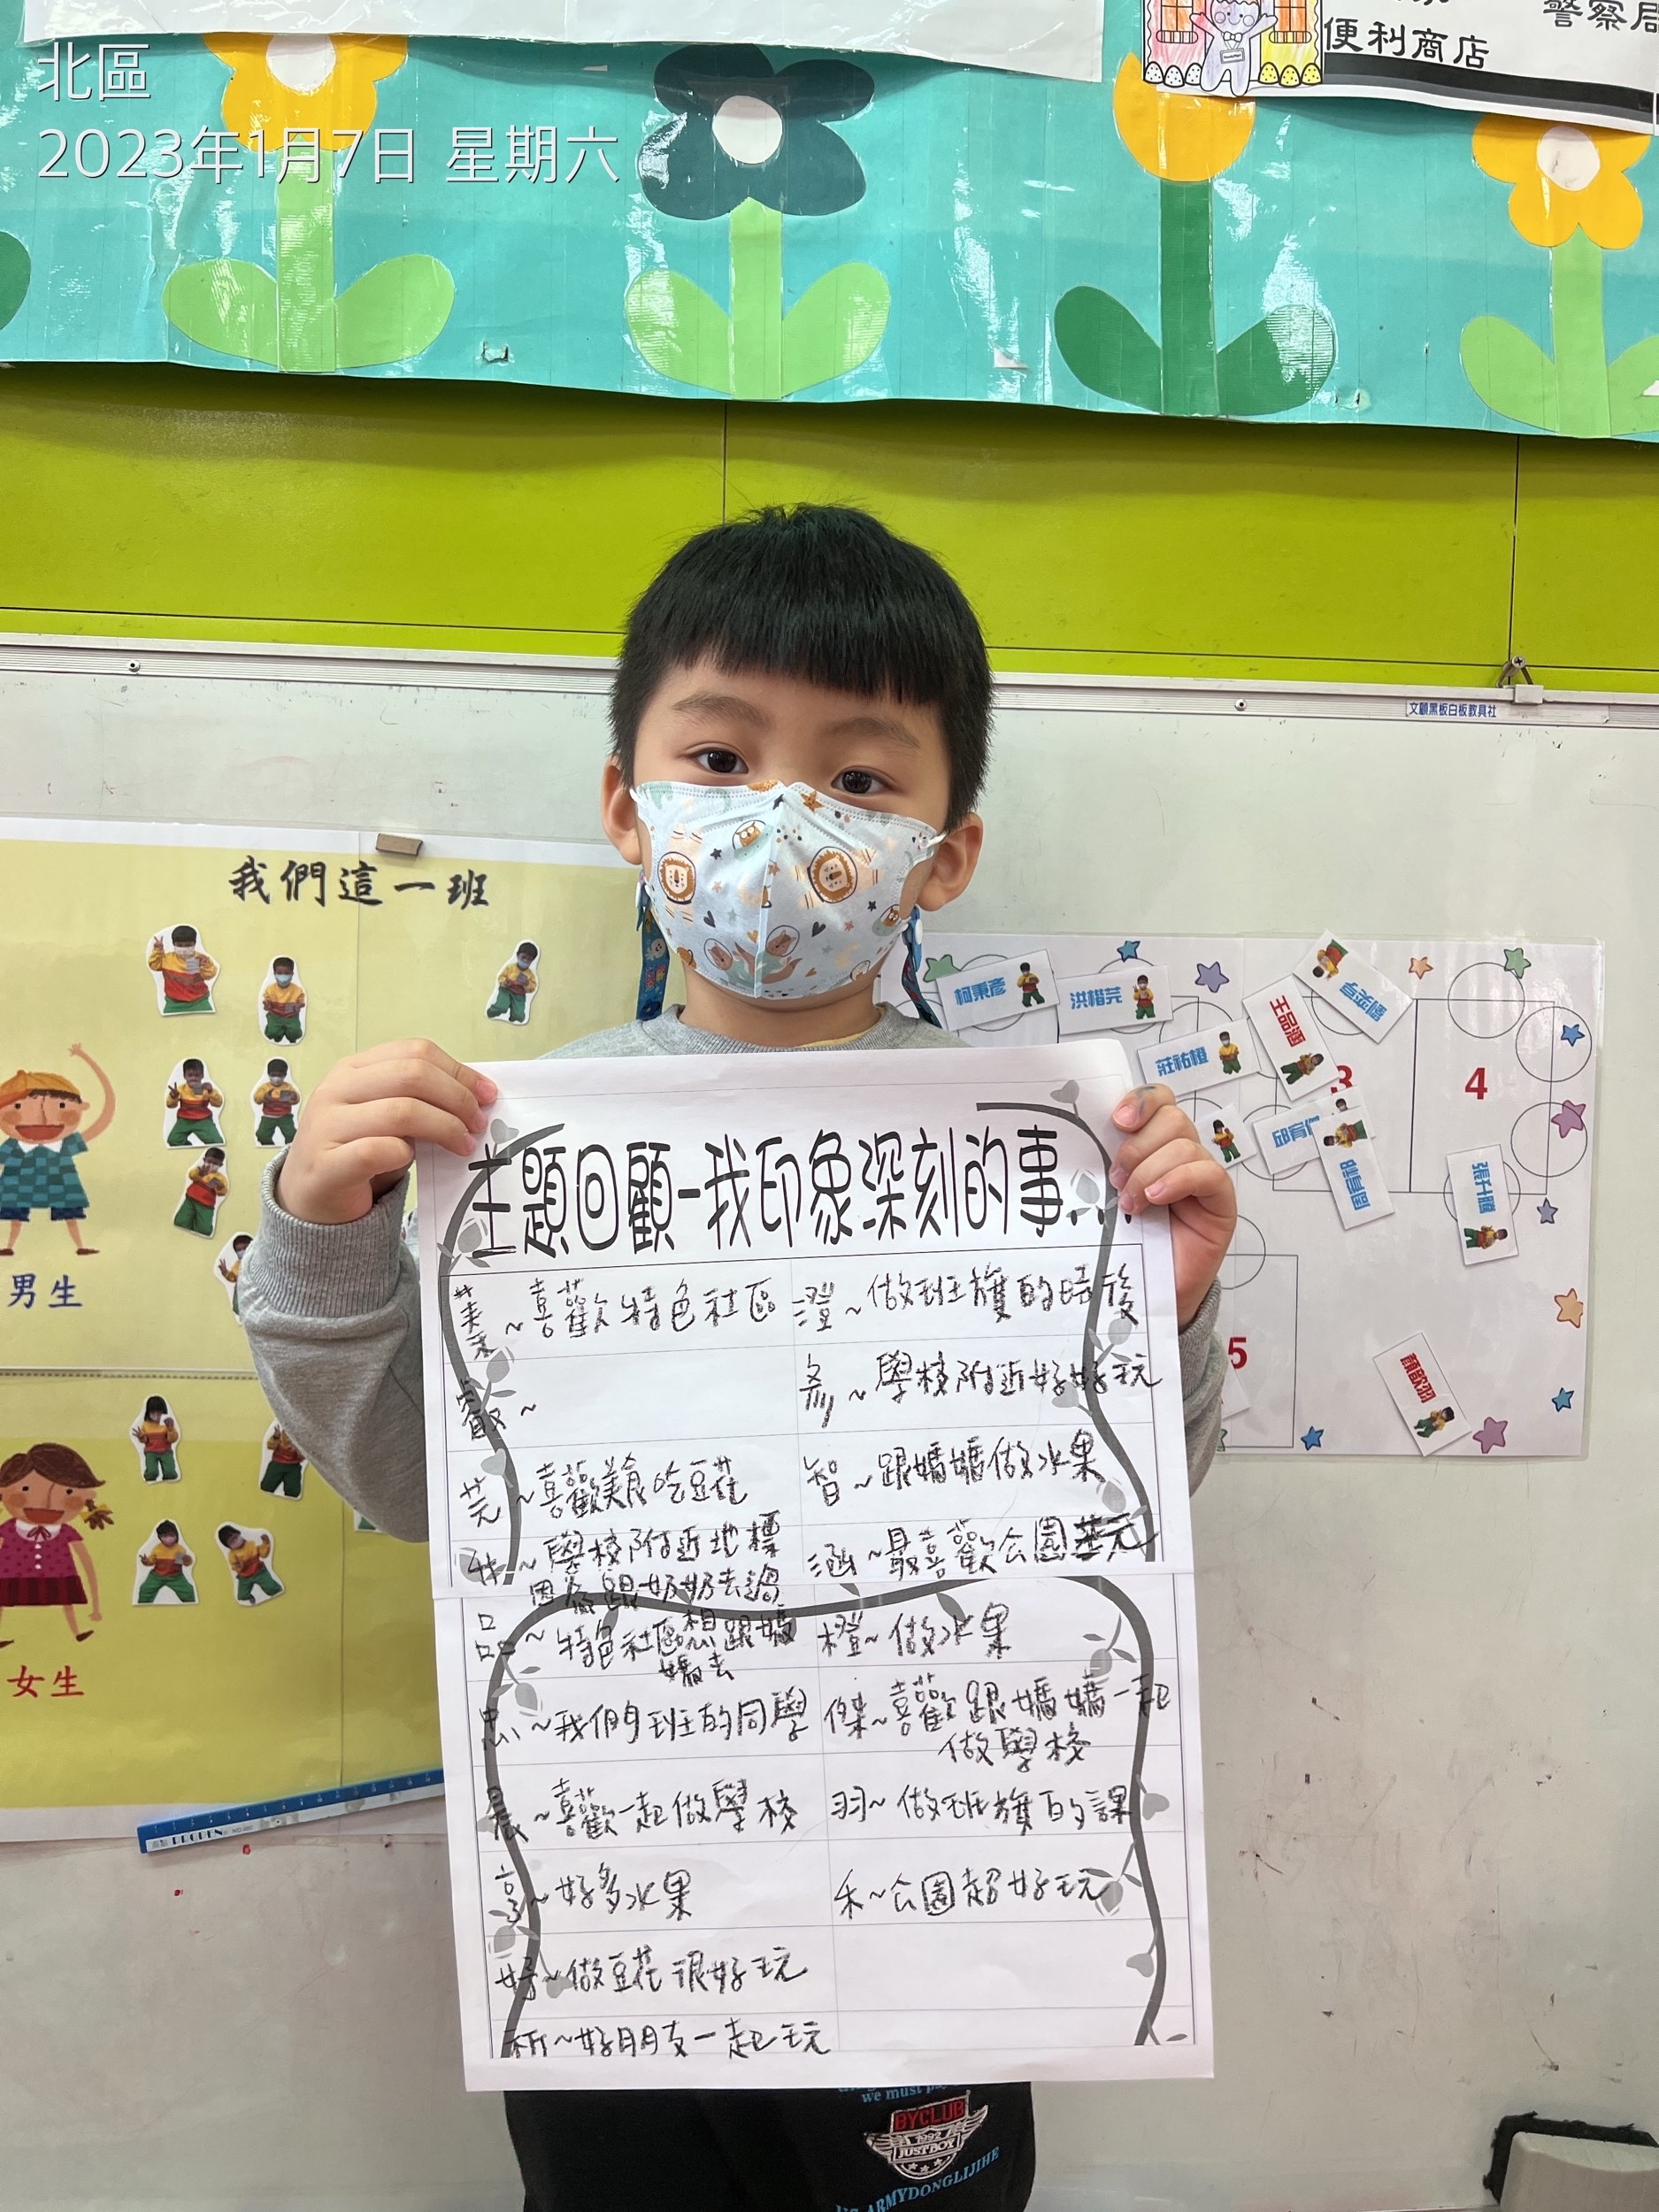 北區
2023年1月7日 星期六
便利商店
警察局
文顧黑板白板教具社
我們這一班
男生
女生
柯秉彥
洪楷芫
莊祐橙
王品涵
張升騰
顏歆羽
3
4
5
主題回顧-我印象深刻的事...
~喜歡特色社區
澄~做班旗的時後
叡~
彣~學校附近好好玩
芫~喜歡美食吃豆花
智~跟媽媽做水果
升~學校附近地標
因為跟奶奶去過
涵~最喜歡公園
品~特色社區想跟媽
媽去
橙~做水果
忠~我們班的同學
傑~喜歡跟媽媽一起
做學校
晨~喜歡一起做學校
羽~做班旗的課
享~好多水果
禾~公園超好玩
好~做豆花很好玩
祈~好朋友一起玩
we must
BYCLUB
1992
JUSTBOY
ARMYDONGLIJIHE